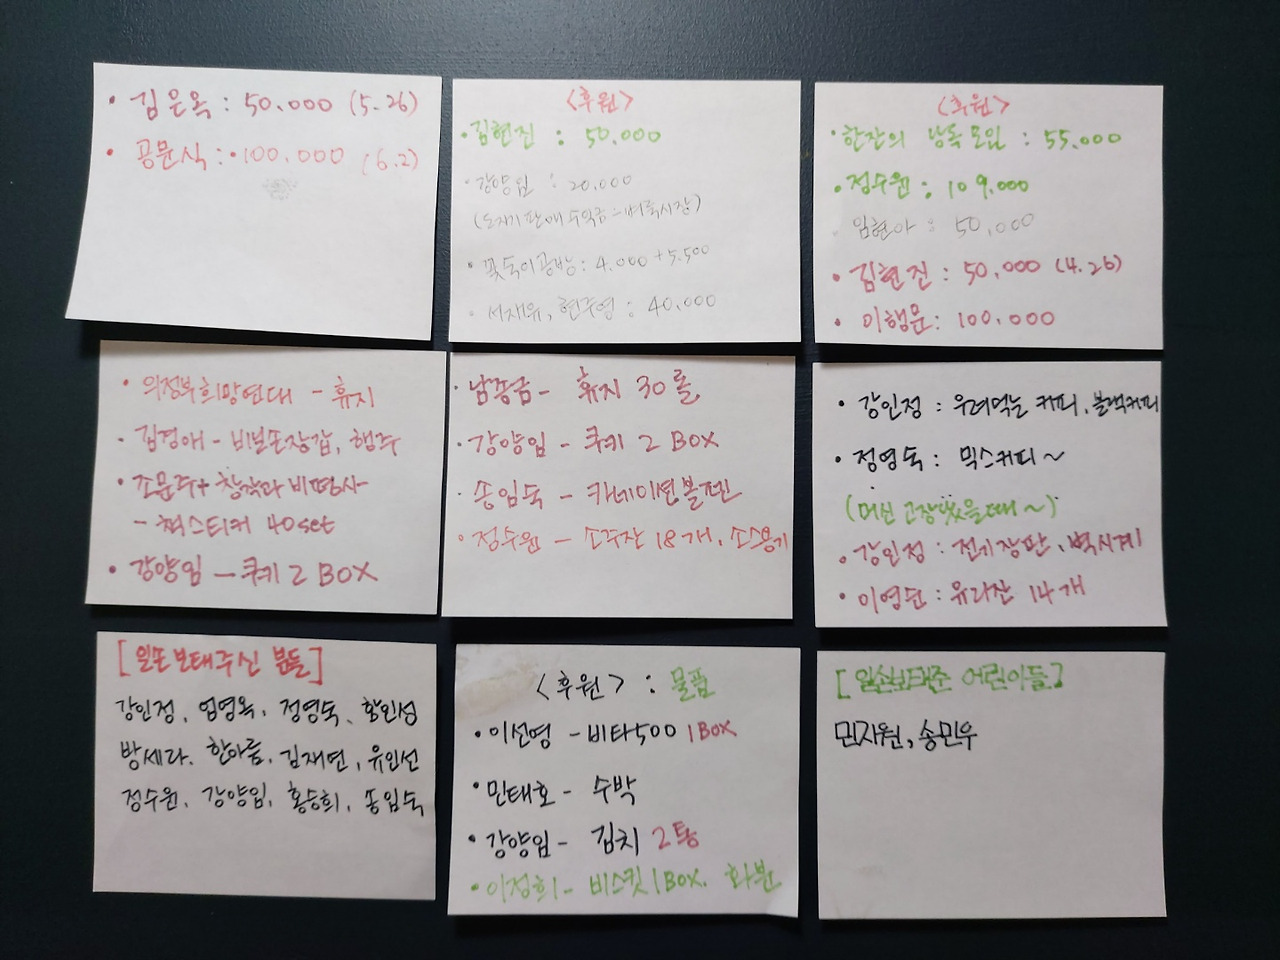 • 김은옥 : 50.000 (5.26)
• 공문식 : 100.000 (6.2)
<후원>
• 김현진 : 50.000
• 강양임 : 20.000
(도자기판매수익금-벼룩시장)
• 꽃둑이공방 : 4.000 + 5.500
• 서재유, 현주영 : 40.000
<후원>
• 한잔의 낭독모임 : 55.000
• 정수원 : 109.000
임현아 : 50.000
• 김현진 : 50.000 (4.26)
• 이행문 : 100.000
• 의정부희망연대 - 휴지
• 김경애 - 비보손장갑, 행주
• 조문주+ 창작과 비평사
- 책스티커 40set
• 강양임 - 쿠키 2 BOX
• 남종금 - 휴지 30롤
• 강양임 - 쿠키 2 BOX
• 송임숙 - 카네이션볼펜
• 정수원 - 소주잔 18개, 소스용기
• 강인정 : 우려먹는 커피, 블랙커피
• 정영숙 : 믹스커피~
(머신 고장났을때~)
• 강인정 : 전기장판, 벽시계
• 이영순 : 유리잔 14개
[일손보태주신 분들]
강인정, 엄영옥, 정영숙, 황인성
방세라, 한아름, 김재연, 유인선
정수원, 강양임, 홍승희, 송임숙
<후원> : 물품
• 이선영 - 비타500 1BOX
• 민태호 - 수박
• 강양임 - 김치 2통
• 이정희 - 비스킷 1BOX. 화분
[일손보태준 어린이들]
민지원, 송민우